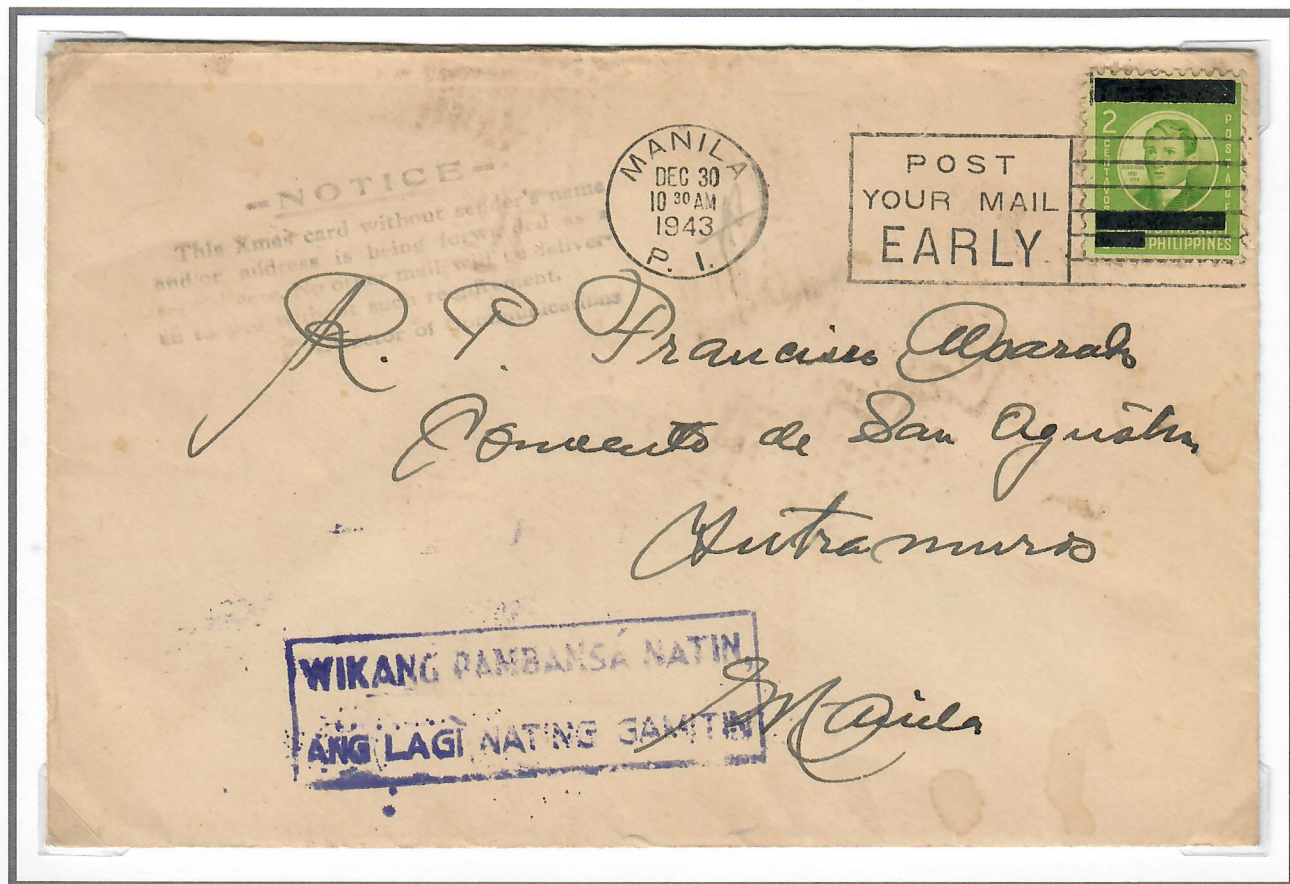 -NOTICE-
This Xmas card without sender's name
and/or address is being forwarded as a
mail will be deliver-
ed to without such requirement.
Director of Communications
MANILA
DEC 30
10 30 AM
1943
P. I.
POST
YOUR MAIL
EARLY
2
CENTAVOS
POSTAGE
PHILIPPINES
R. P. Francisco Alvarado
Convento de San Agustin
Intramuros
Manila
WIKANG PAMBANSÁ NATIN
ANG LAGÌ NATING GAMITIN